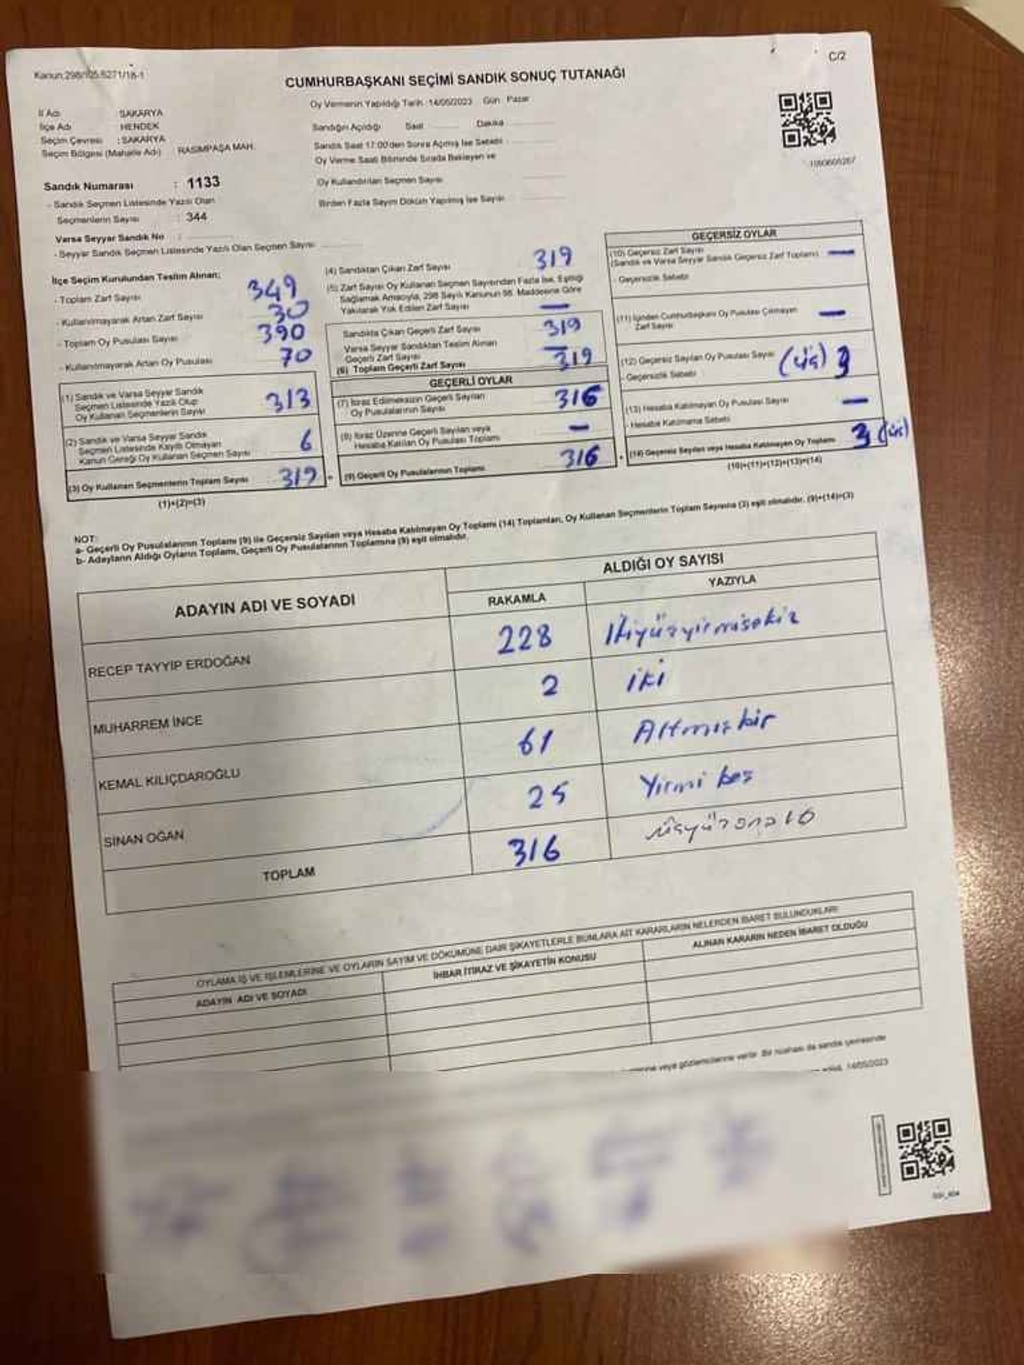 Kanun:298/105,6271/18-1
C/2
CUMHURBAŞKANI SEÇİMİ SANDIK SONUÇ TUTANAĞI
İl Adı SAKARYA
İlçe Adı HENDEK
Seçim Çevresi : SAKARYA
Seçim Bölgesi (Mahalle Adı) RASIMPAŞA MAH.
Oy Vermenin Yapıldığı Tarih :14/05/2023 Gün Pazar
Sandığın Açıldığı Saat Dakika
Sandık Saat 17:00'den Sonra Açılmış İse Sebebi :
Oy Verme Saati Bitiminde Sırada Bekleyen ve
Oy Kullandırılan Seçmen Sayısı
Birden Fazla Sayım Döküm Yapılmış İse Sayısı
Sandık Numarası : 1133
- Sandık Seçmen Listesinde Yazılı Olan
Seçmenlerin Sayısı : 344
Varsa Seyyar Sandık No :
- Seyyar Sandık Seçmen Listesinde Yazılı Olan Seçmen Sayısı
İlçe Seçim Kurulundan Teslim Alınan;
- Toplam Zarf Sayısı 349
- Kullanılmayarak Artan Zarf Sayısı 30
- Toplam Oy Pusulası Sayısı 390
- Kullanılmayarak Artan Oy Pusulası 70
(1) Sandık ve Varsa Seyyar Sandık
Seçmen Listesinde Yazılı Olup
Oy Kullanan Seçmenlerin Sayısı 313
(2) Sandık ve Varsa Seyyar Sandık
Seçmen Listesinde Kayıtlı Olmayan
Kanun Gereği Oy Kullanan Seçmen Sayısı 6
(3) Oy Kullanan Seçmenlerin Toplam Sayısı 319
(1)+(2)=(3)
(4) Sandıktan Çıkan Zarf Sayısı 319
(5) Zarf Sayısı Oy Kullanan Seçmen Sayısından Fazla İse, Eşitliği
Sağlamak Amacıyla, 298 Sayılı Kanunun 98. Maddesine Göre
Yakılarak Yok Edilen Zarf Sayısı —
Sandıkta Çıkan Geçerli Zarf Sayısı 319
Varsa Seyyar Sandıktan Teslim Alınan
Geçerli Zarf Sayısı —
(6) Toplam Geçerli Zarf Sayısı 319
GEÇERLİ OYLAR
(7) İtiraz Edilmeksizin Geçerli Sayılan
Oy Pusulalarının Sayısı 316
(8) İtiraz Üzerine Geçerli Sayılan veya
Hesaba Katılan Oy Pusulası Toplamı —
(9) Geçerli Oy Pusulalarının Toplamı 316
GEÇERSİZ OYLAR
(10) Geçersiz Zarf Sayısı
(Sandık ve Varsa Seyyar Sandık Geçersiz Zarf Toplamı) —
- Geçersizlik Sebebi
(11) İçinden Cumhurbaşkanı Oy Pusulası Çıkmayan
Zarf Sayısı —
(12) Geçersiz Sayılan Oy Pusulası Sayısı (üç) 3
- Geçersizlik Sebebi
(13) Hesaba Katılmayan Oy Pusulası Sayısı —
- Hesaba Katılmama Sebebi
(14) Geçersiz Sayılan veya Hesaba Katılmayan Oy Toplamı 3 (üç)
(10)+(11)+(12)+(13)=(14)
NOT:
a- Geçerli Oy Pusulalarının Toplamı (9) ile Geçersiz Sayılan veya Hesaba Katılmayan Oy Toplamı (14) Toplamları, Oy Kullanan Seçmenlerin Toplam Sayısına (3) eşit olmalıdır. (9)+(14)=(3)
b- Adayların Aldığı Oyların Toplamı, Geçerli Oy Pusulalarının Toplamına (9) eşit olmalıdır.
ADAYIN ADI VE SOYADI
ALDIĞI OY SAYISI
RAKAMLA YAZIYLA
RECEP TAYYİP ERDOĞAN 228 İkiyüzyirmisekiz
MUHARREM İNCE 2 iki
KEMAL KILIÇDAROĞLU 61 Altmışbir
SİNAN OĞAN 25 Yirmi beş
TOPLAM 316 üçyüzonaltı
OYLAMA İŞ VE İŞLEMLERİNE VE OYLARIN SAYIM VE DÖKÜMÜNE DAİR ŞİKAYETLERLE BUNLARA AİT KARARLARIN NELERDEN İBARET BULUNDUKLARI
ADAYIN ADI VE SOYADI
İHBAR İTİRAZ VE ŞİKAYETİN KONUSU
ALINAN KARARIN NEDEN İBARET OLDUĞU
veya gözlemcilerine verilir. Bir nüshası da sandık çevresinde
14/05/2023